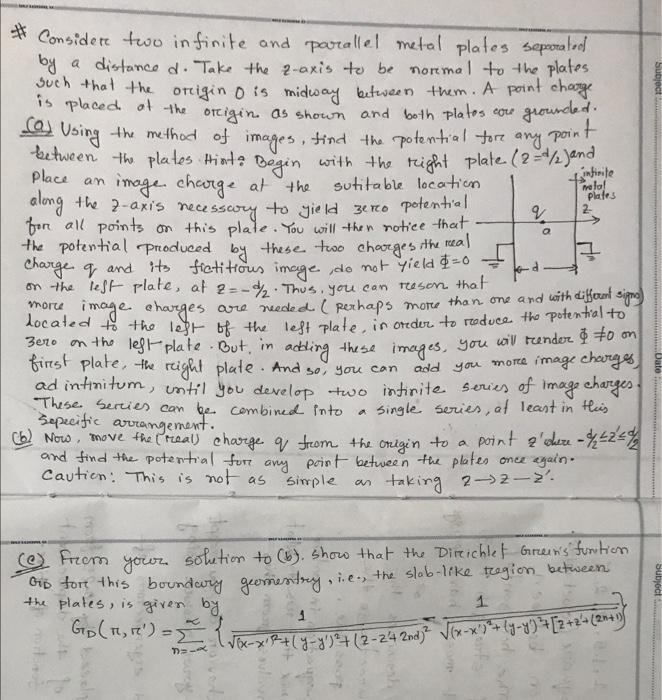 # Consider two infinite and parallel metal plates separated
by a distance d. Take the z-axis to be normal to the plates
such that the origin O is midway between them. A point charge
is placed at the origin as shown and both plates are grounded.
(a) Using the method of images, find the potential for any point
between the plates. Hint: Begin with the right plate (z=d/2) and
place an image charge at the sutitable location
along the z-axis necessary to yield zero potential
for all points on this plate. You will then notice that
the potential produced by these two charges, the real
charge q and its fictitious image, do not yield Φ=0
on the left plate, at z=-d/2. Thus, you can reason that
more image charges are needed (perhaps more than one and with different signs)
located to the left of the left plate, in order to reduce the potential to
zero on the left plate. But, in adding these images, you will render Φ≠0 on
first plate, the right plate. And so, you can add you more image charges,
ad infinitum, until you develop two infinite series of image charges.
These series can be combined into a single series, at least in this
sepecific arrangement.
infinite
metal
plates
q
z
a
d
(b) Now, move the (real) charge q from the origin to a point z' where -d/2≤z'≤d/2
and find the potential for any point between the plates once again.
Caution: This is not as simple as taking z→z-z'.
(c) From your solution to (b). Show that the Dirichlet Green's funtion
G_D for this boundary geomentry, i.e., the slab-like region between
the plates, is given by
G_D(r,r') = Σ_{n=-∞}^{∞} { 1/√((x-x')²+(y-y')²+(z-z'+2nd)²) - 1/√((x-x')²+(y-y')²+[z+z'+(2n+1)
Subject
Date
Subject